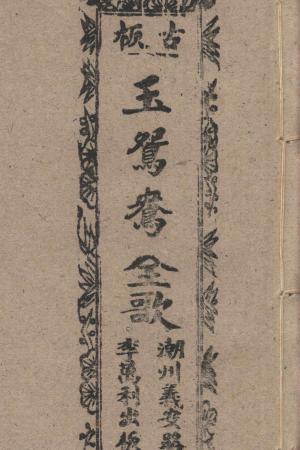 古板
玉鴛鴦全歌
潮州義安路
李萬利出版